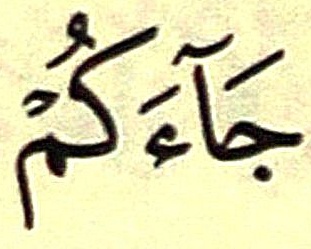 جَآءَكُمْ